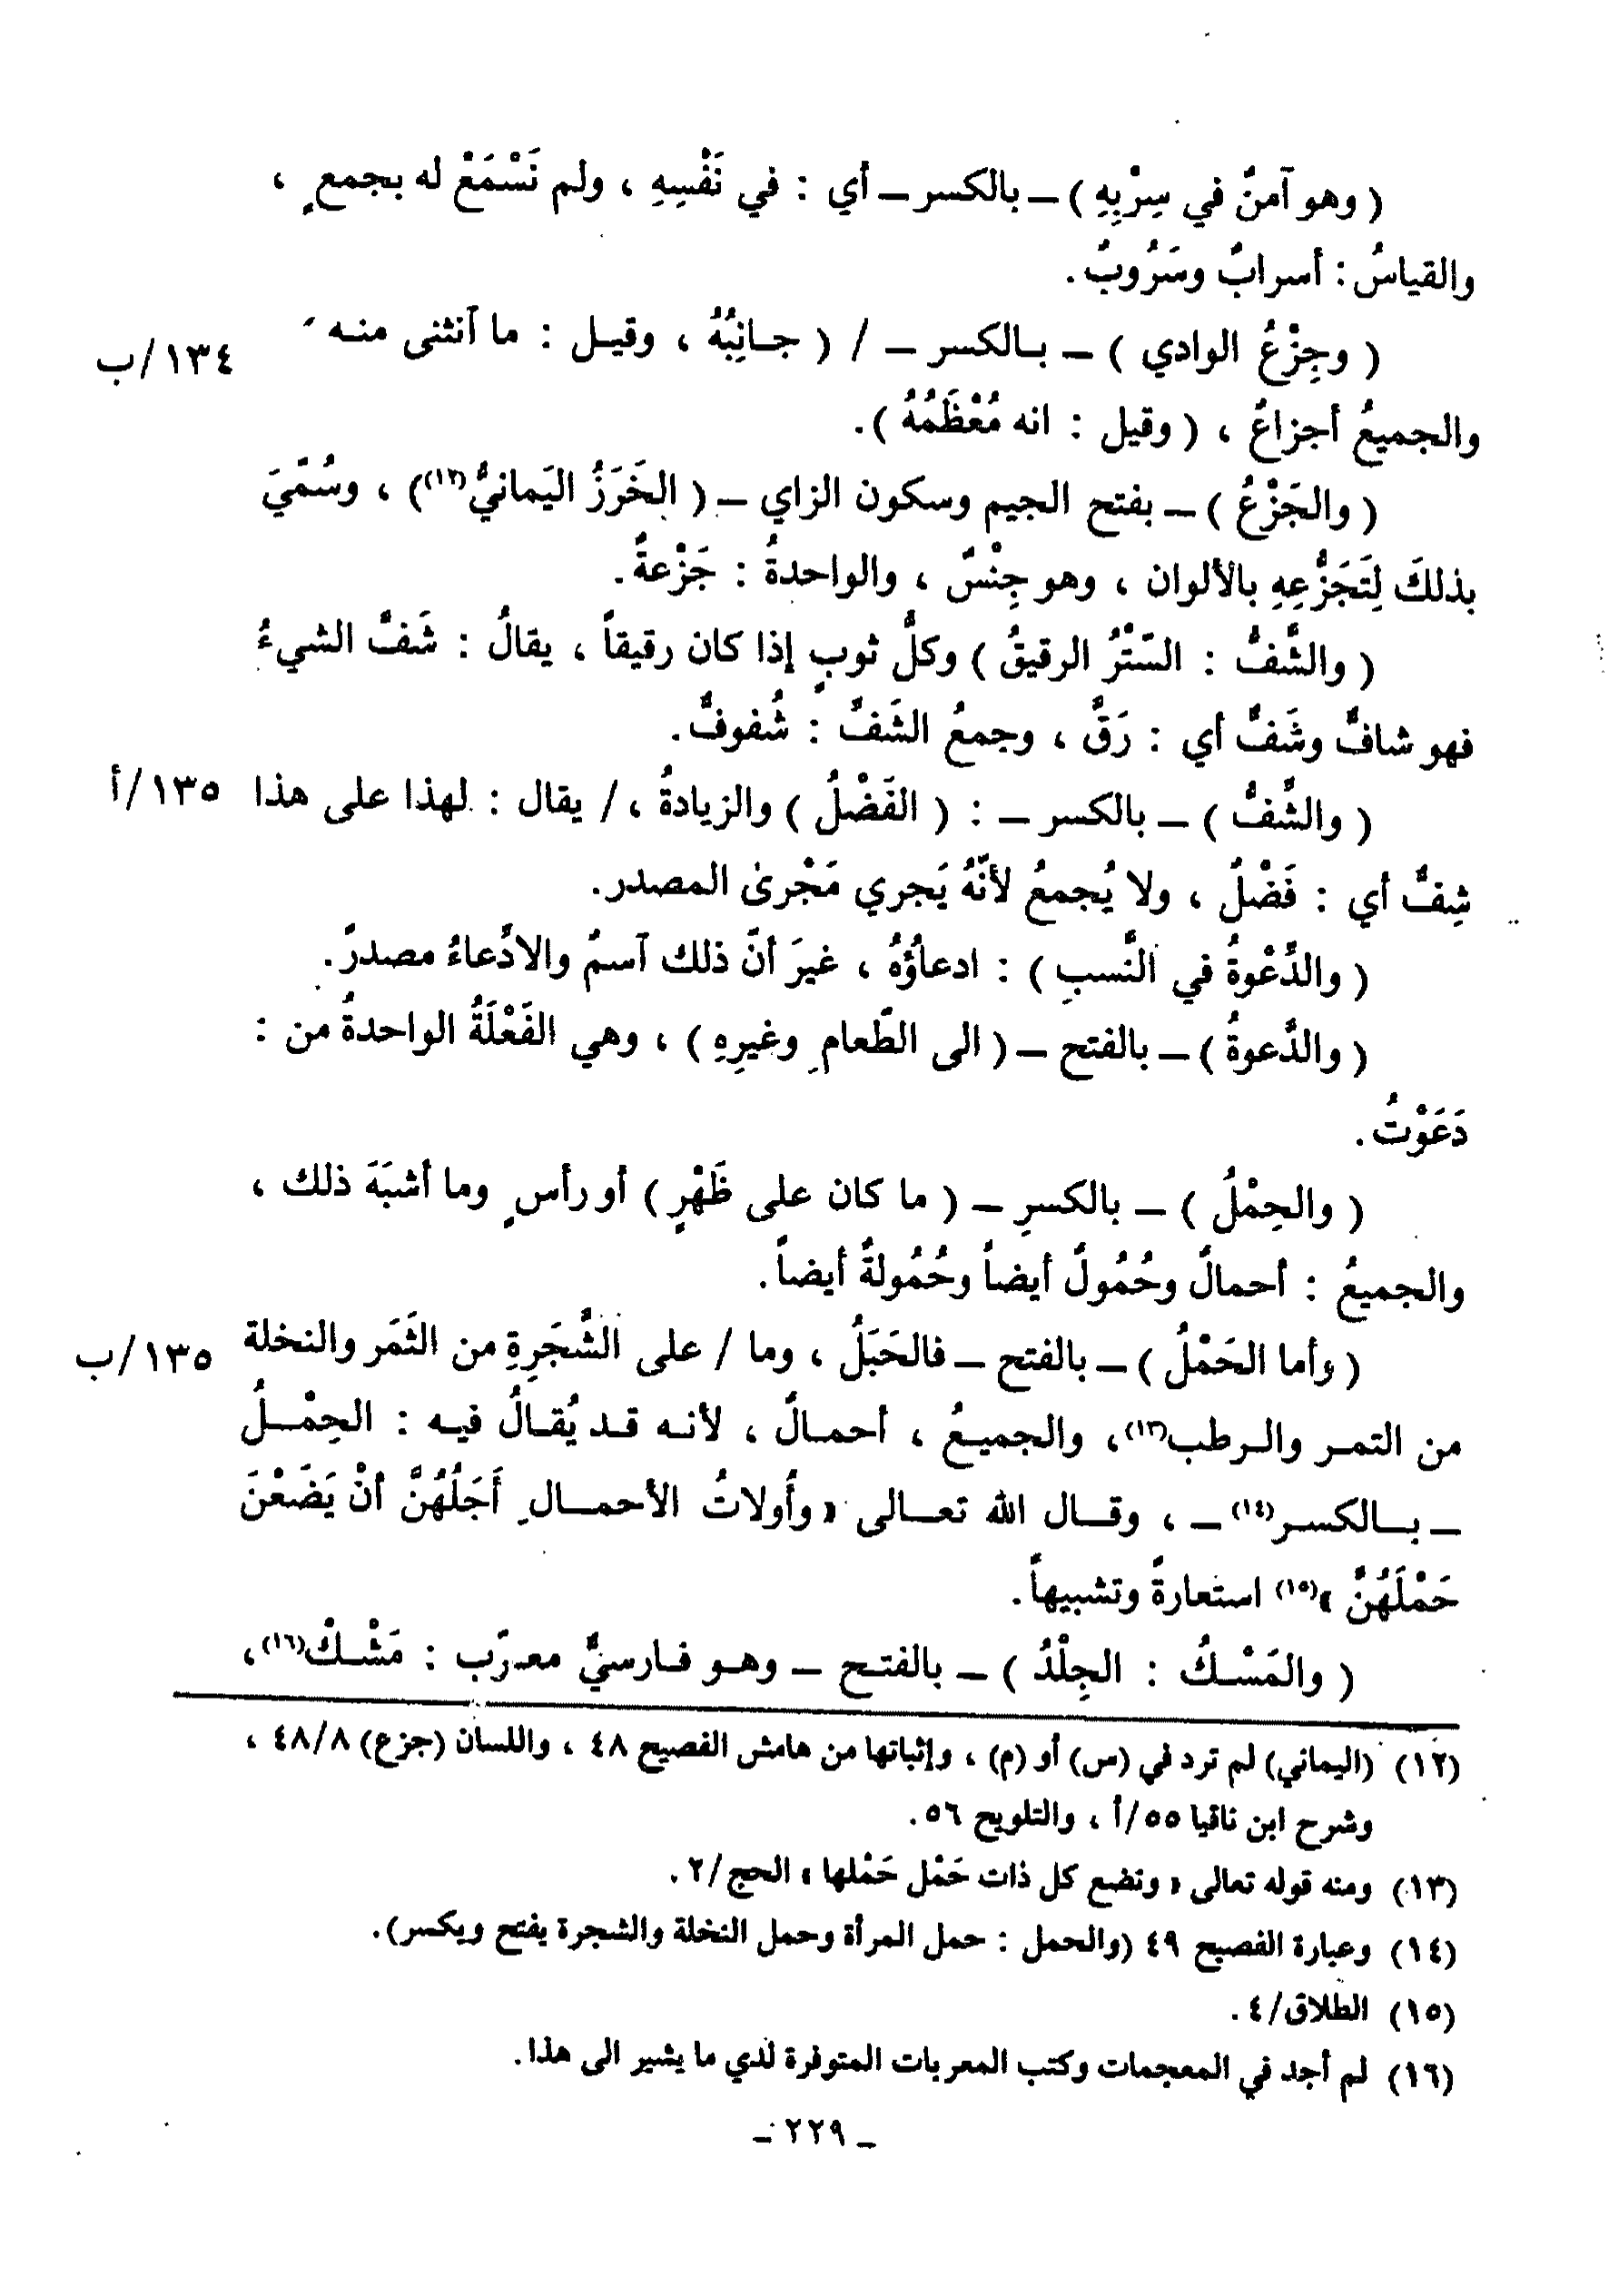 ( وهو آمنٌ في سِرْبِهِ ) – بالكسر – أي : في نَفْسِهِ ، ولم نَسْمَعْ له بجمعٍ ،
والقياسُ : أسرابٌ وسَرُوبٌ .
( وجِزْعُ الوادي ) – بـالكسر – / ( جـانِبُهُ ، وقيـل : ما آنثنى منـه ١٣٤/ب
والجميعُ أجزاعٌ ، ( وقيل : انه مُعْظَمُهُ ).
( والجَزْعُ ) – بفتح الجيم وسكون الزاي – ( الخَرَزُ اليَمانيُّ(١٢)) ، وسُمِّيَ
بذلكَ لِتَجَزُّعِهِ بالألوان ، وهو جِنْسٌ ، والواحدةُ : جَزْعةٌ .
( والشَّفُّ : السِّتْرُ الرقيقُ ) وكلُّ ثوبٍ إذا كان رقيقاً ، يقالُ : شَفَّ الشيءُ
فهو شافٌّ وشَفٌّ أي : رَقَّ ، وجمعُ الشَفِّ : شُفوفٌ .
( والشِّفُّ ) – بالكسر – : ( الفَضْلُ ) والزيادةُ ، / يقال : لهذا على هذا ١٣٥/أ
شِفٌّ أي : فَضْلٌ ، ولا يُجمعُ لأنّهُ يَجري مَجْرىٰ المصدر .
( والدِّعْوةُ في النَّسبِ ) : ادعاؤُهُ ، غيرَ أنّ ذلك آسمٌ والادِّعاءُ مصدرٌ .
( والدَّعوةُ ) – بالفتح – ( الى الطَّعامِ وغيرِهِ ) ، وهي الفَعْلَةُ الواحدةُ من :
دَعَوْتُ .
( والحِمْلُ ) – بالكسرِ – ( ما كان على ظَهْرٍ ) أو رأسٍ وما أشبَهَ ذلك ،
والجميعُ : أحمالٌ وحُمُولٌ أيضاً وحُمُولةٌ أيضاً .
( وأما الحَمْلُ ) – بالفتح – فالحَبَلُ ، وما / على الشَّجَرةِ من الثَمَر والنخلة ١٣٥/ب
من التمـر والـرطب(١٣)، والجميـعُ ، أحمـالٌ ، لأنـه قـد يُقـالُ فيـه : الحِمْـلُ
– بـالكسـر(١٤) – ، وقـال الله تعـالى « وأُولاتُ الأحمـالِ أَجَلُهُنَّ أنْ يَضَعْنَ
حَمْلَهُنَّ »(١٥) استعارةً وتشبيهاً .
( والمَسْـكُ : الجِلْدُ ) – بالفتـح – وهـو فـارسيٌّ معـرّب : مَشْـكْ(١٦)،
(١٢) (اليماني) لم ترد في (س) أو (م) ، وإثباتها من هامش الفصيح ٤٨ ، واللسان (جزع) ٤٨/٨ ،
وشرح ابن ناقيا ٥٥/أ ، والتلويح ٥٦ .
(١٣) ومنه قوله تعالى « وتضع كل ذات حَمْل حَمْلها » الحج/٢ .
(١٤) وعبارة الفصيح ٤٩ (والحمل : حمل المرأة وحمل النخلة والشجرة يفتح ويكسر).
(١٥) الطلاق/٤ .
(١٦) لم أجد في المعجمات وكتب المعربات المتوفرة لدي ما يشير الى هذا .
– ٢٢٩ –